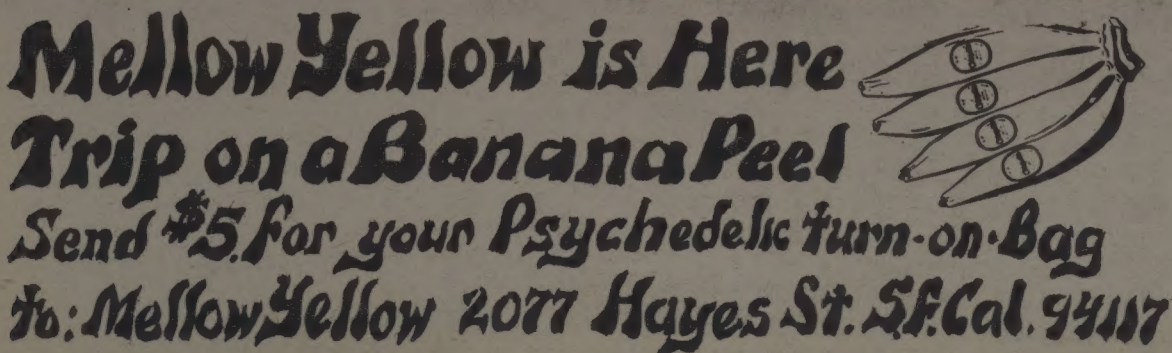 Mellow Yellow is Here
Trip on a Banana Peel
Send $5. for your Psychedelic turn-on-Bag
to: Mellow Yellow 2077 Hayes St. S.F. Cal. 94117